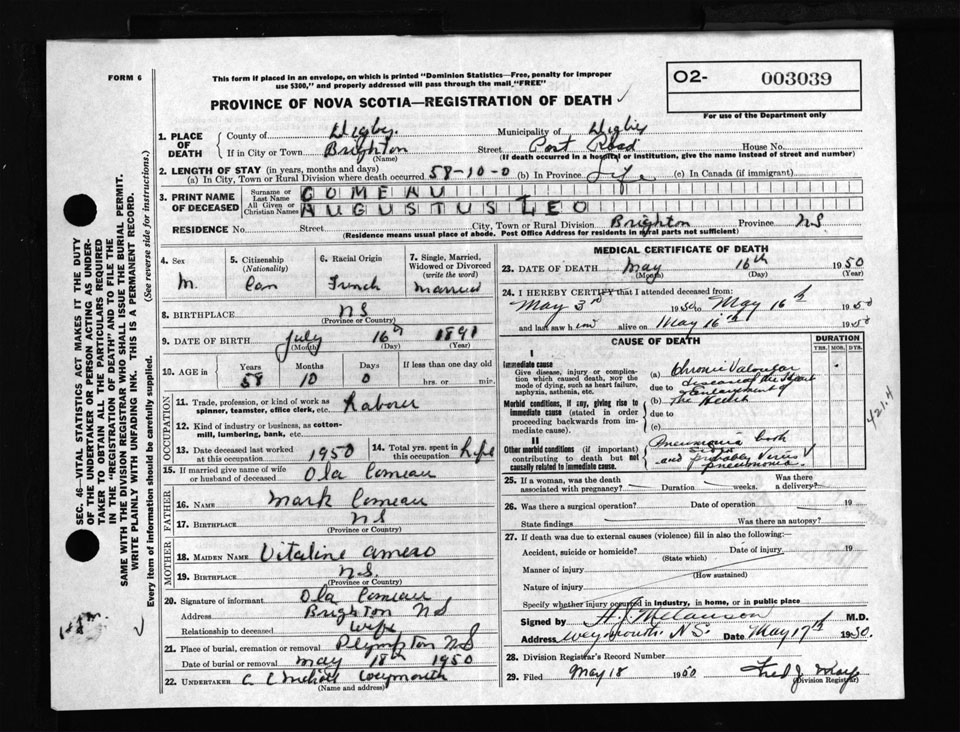 FORM 6
This form if placed in an envelope, on which is printed "Dominion Statistics—Free, penalty for improper
use $300," and properly addressed will pass through the mail "FREE"
O2- 003039
For use of the Department only
PROVINCE OF NOVA SCOTIA—REGISTRATION OF DEATH ✓
1. PLACE OF DEATH
County of Digby. Municipality of Digby
If in City or Town Brighton (Name) Street Post Road House No.
(If death occurred in a hospital or institution, give the name instead of street and number)
2. LENGTH OF STAY (in years, months and days)
(a) In City, Town or Rural Division where death occurred 58-10-0 (b) In Province Life (c) In Canada (if immigrant)
3. PRINT NAME OF DECEASED
Surname or Last Name COMEAU
All Given or Christian Names AUGUSTUS LEO
RESIDENCE No. Street City, Town or Rural Division Brighton Province NS
(Residence means usual place of abode. Post Office Address for residents in rural parts not sufficient)
4. Sex M.
5. Citizenship (Nationality) Can
6. Racial Origin French
7. Single, Married, Widowed or Divorced (write the word) married
8. BIRTHPLACE NS
(Province or Country)
9. DATE OF BIRTH July 16th 1891
(Month) (Day) (Year)
10. AGE in Years 58 Months 10 Days 0 If less than one day old hrs. or min.
OCCUPATION
11. Trade, profession, or kind of work as spinner, teamster, office clerk, etc. Laborer
12. Kind of industry or business, as cotton-mill, lumbering, bank, etc.
13. Date deceased last worked at this occupation 1950
14. Total yrs. spent in this occupation Life
15. If married give name of wife or husband of deceased Ola Comeau
FATHER
16. NAME Mark Comeau
17. BIRTHPLACE NS
(Province or Country)
MOTHER
18. MAIDEN NAME Vitaline Amero
19. BIRTHPLACE N.S.
(Province or Country)
20. Signature of informant Ola Comeau
Address Brighton NS
Relationship to deceased Wife
21. Place of burial, cremation or removal Plympton NS
Date of burial or removal May 18th 1950
22. UNDERTAKER C C Weymouth
(Name and address)
MEDICAL CERTIFICATE OF DEATH
23. DATE OF DEATH May 16th 1950
(Month) (Day) (Year)
24. I HEREBY CERTIFY that I attended deceased from:
May 3rd 1950 to May 16th 1950
and last saw him alive on May 16th 1950
CAUSE OF DEATH
DURATION
YRS. MOS. DYS.
I
Immediate cause
Give disease, injury or complication which caused death, NOT the mode of dying, such as heart failure, asphyxia, asthenia, etc.
(a) Chronic Valvular
disease of the Heart
due to
Morbid conditions, if any, giving rise to immediate cause (stated in order proceeding backwards from immediate cause).
(b) Enlargement of
The Heart
due to
(c)
II
Other morbid conditions (if important) contributing to death but not causally related to immediate cause.
Pneumonia both
sides
and probably Virus
pneumonia
421.4
25. If a woman, was the death associated with pregnancy? Duration weeks. Was there a delivery?
26. Was there a surgical operation? Date of operation 19
State findings Was there an autopsy?
27. If death was due to external causes (violence) fill in also the following:
Accident, suicide or homicide? Date of injury 19
(State which)
Manner of injury
(How sustained)
Nature of injury
Specify whether injury occurred in industry, in home, or in public place
Signed by H. J. Melanson M.D.
Address Weymouth N.S. Date May 17th 1950.
28. Division Registrar's Record Number
29. Filed May 18 1950 Fred J.
(Division Registrar)
SEC. 46—VITAL STATISTICS ACT MAKES IT THE DUTY
OF THE UNDERTAKER OR PERSON ACTING AS UNDER-
TAKER TO OBTAIN ALL THE PARTICULARS REQUIRED
IN THE "REGISTRATION OF DEATH" AND TO FILE THE
SAME WITH THE DIVISION REGISTRAR WHO SHALL ISSUE THE BURIAL PERMIT.
WRITE PLAINLY WITH UNFADING INK. THIS IS A PERMANENT RECORD.
Every item of information should be carefully supplied. (See reverse side for instructions.)